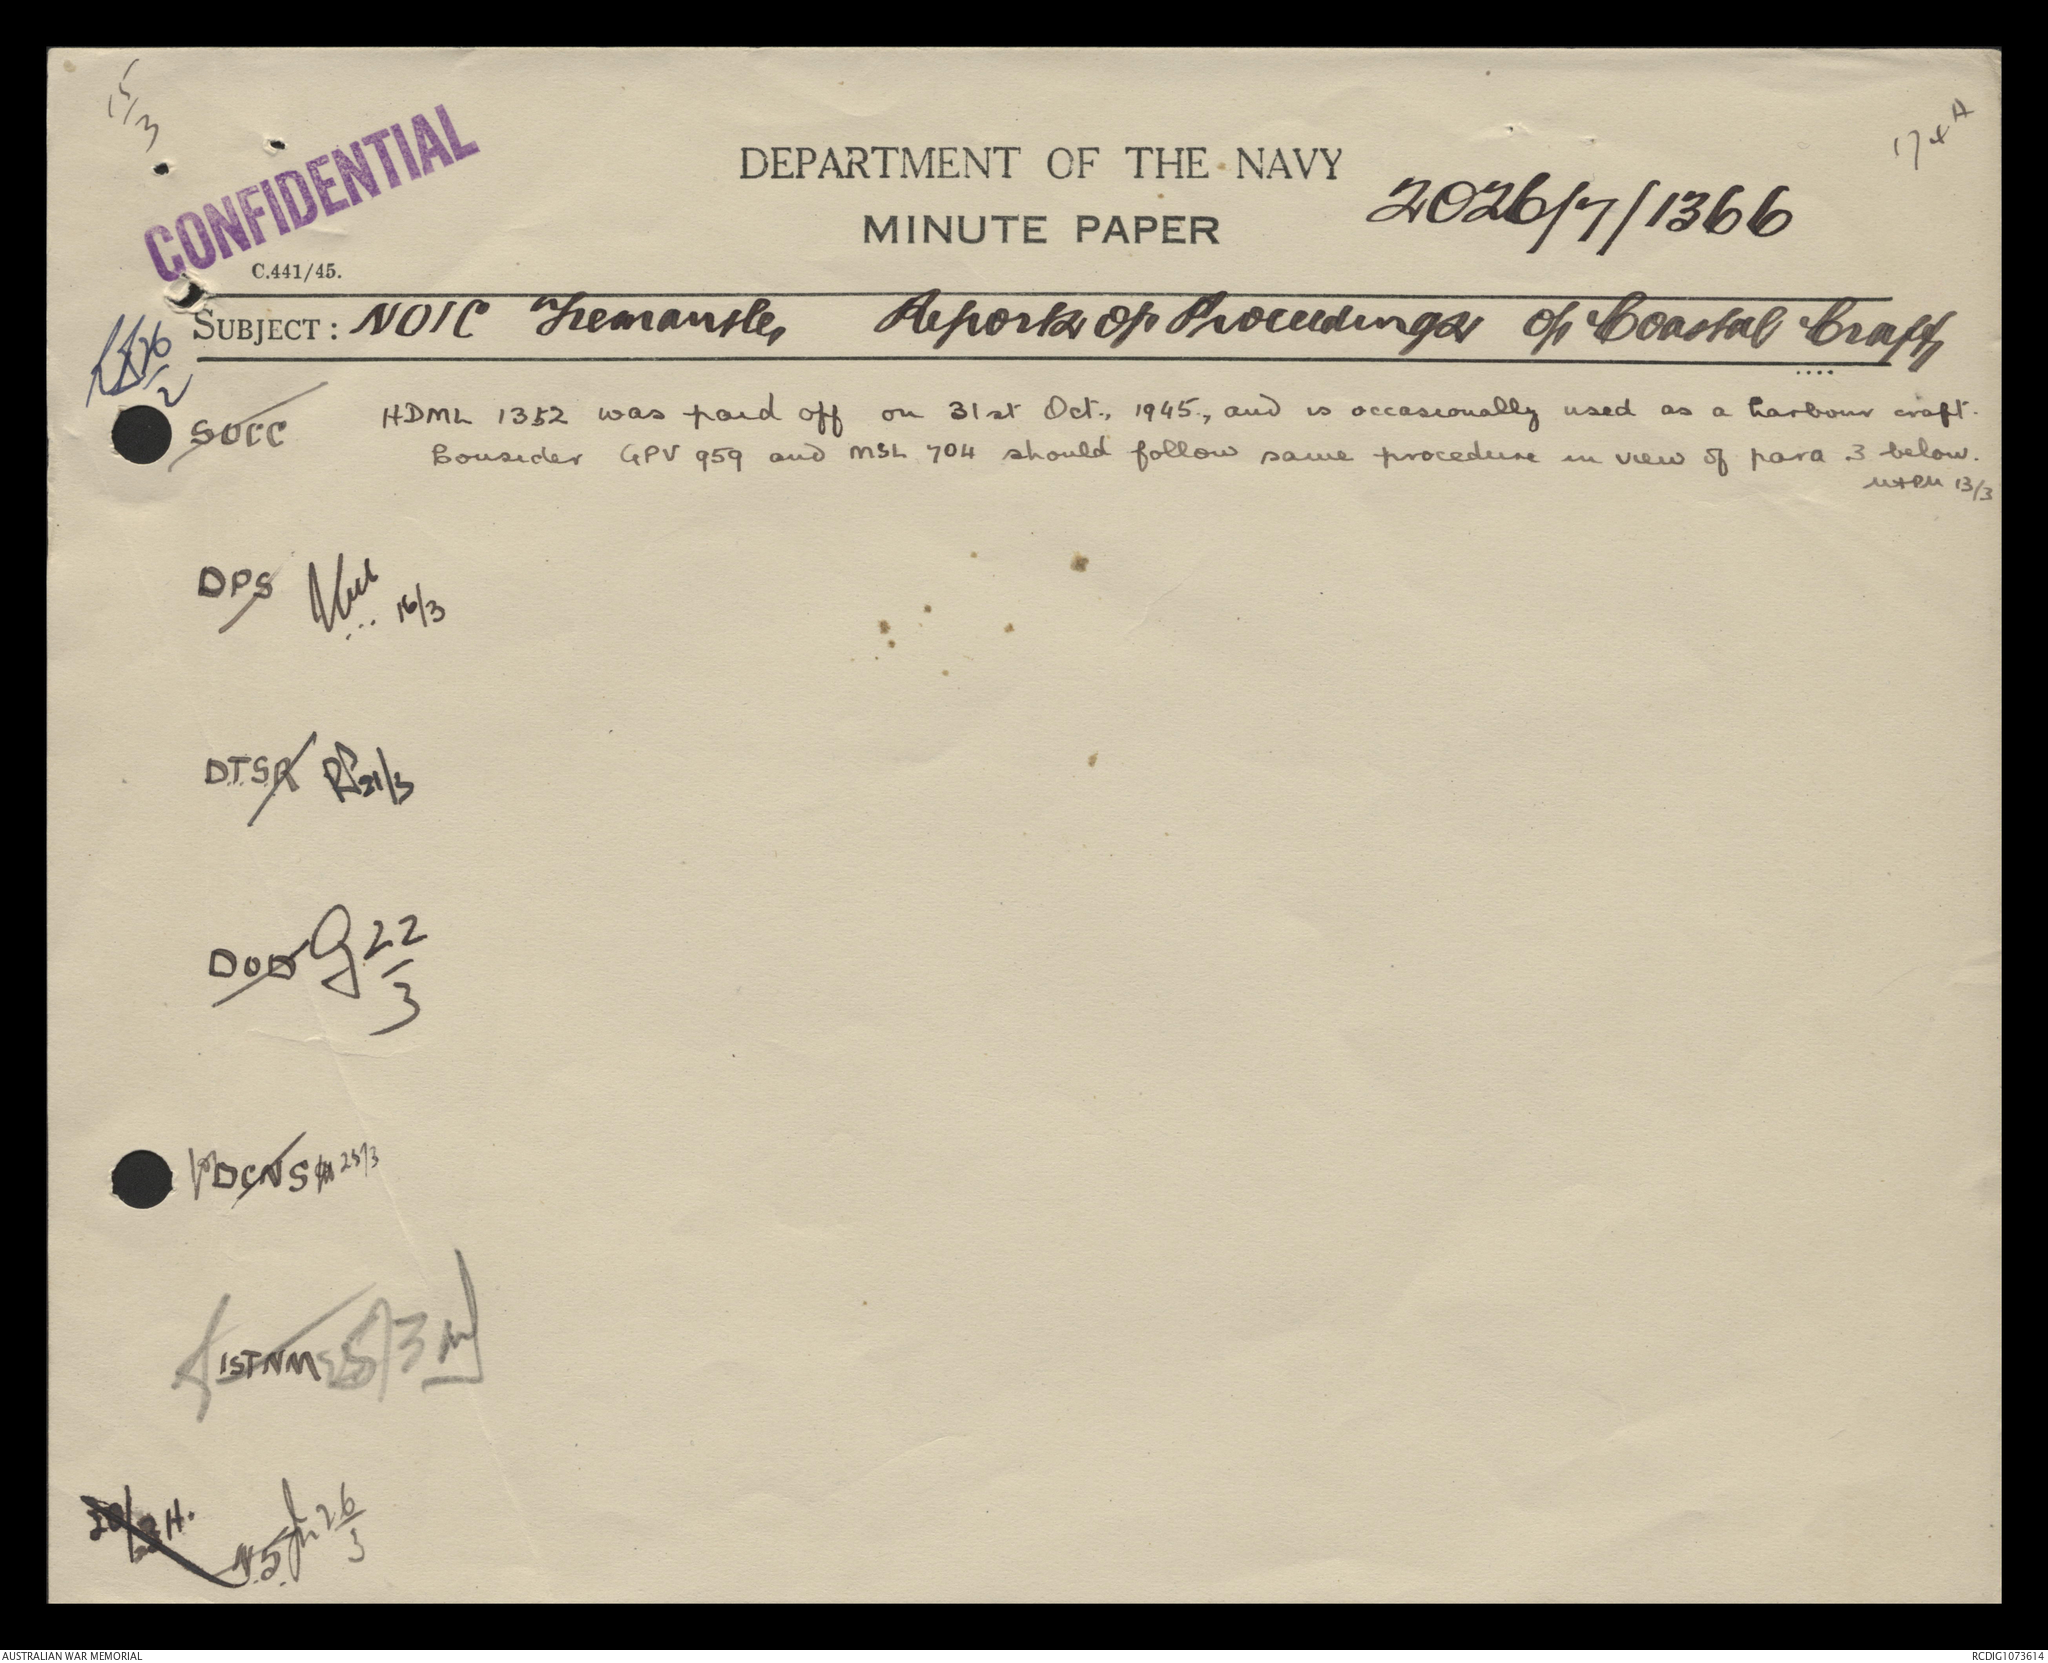 15/3
174A
CONFIDENTIAL
DEPARTMENT OF THE NAVY
MINUTE PAPER
2026/7/1366
C.441/45.
SUBJECT: NOIC Fremantle, Reports of Proceedings of Coastal Craft
26/2
SOCC HDML 1352 was paid off on 31st Oct., 1945., and is occasionally used as a harbour craft.
Consider GPV 959 and MSL 704 should follow same procedure in view of para 3 below.
13/3
DPS 16/3
D.T.S.R 21/3
DOD 22/3
DCNS 25/3
1STNM 25/3
N.5. 26/3
AUSTRALIAN WAR MEMORIAL
RCDIG1073614